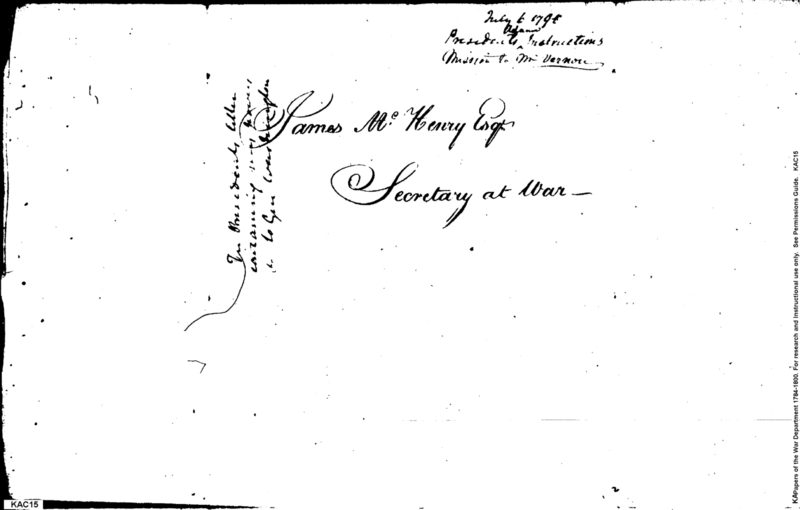 July 6 1798
Adams
Presidents Instructions
Mission to Mt Vernon
James Mc Henry Esqr
Secretary at War —
The Presidents letter
containing my
to Gen Washington
KAC15
Papers of the War Department 1784-1800. For research and Instructional use only. See Permissions Guide. KAC15